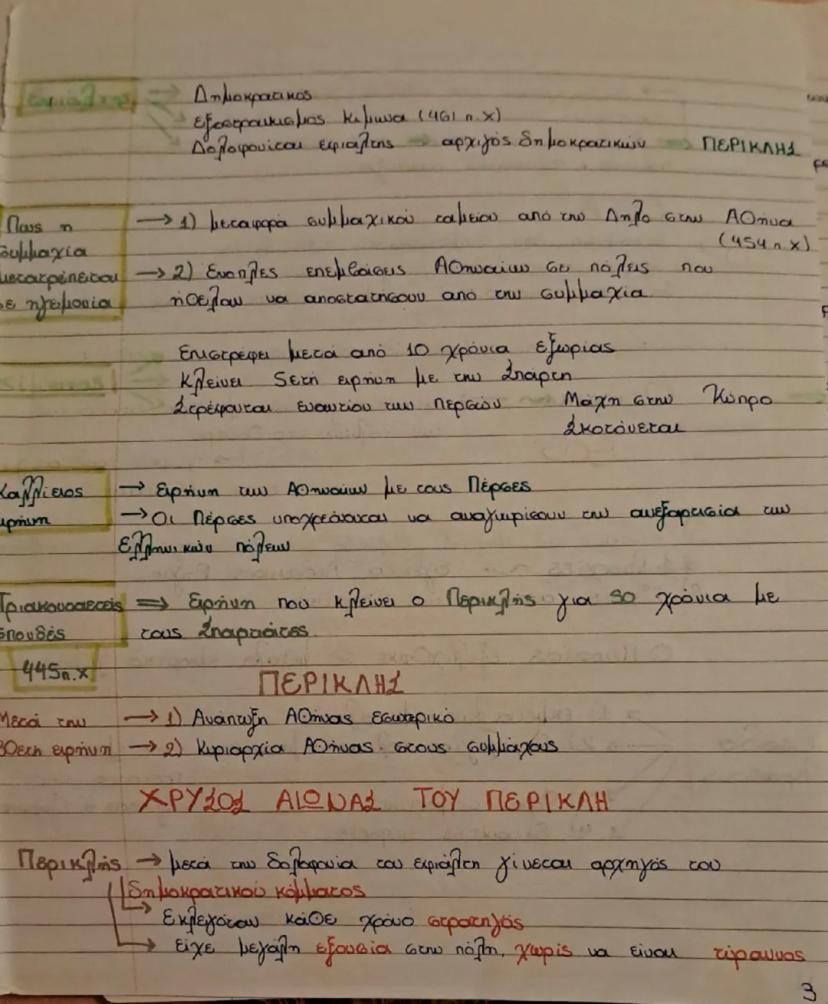 Εφιάλτης → Δημοκρατικος
εξοστρακισμος Κιμωνα (461 π.Χ)
Δολοφονίται εφιάλτης → αρχιγός δημοκρατικών → ΠΕΡΙΚΛΗΣ
Πως η → 1) μεταφορα συμμαχικού ταμείου από την Δηλο στην Αθηνα
συμμαχία (454 π.Χ)
μετατρέπεται → 2) Ενοπλες επεμβάσεις Αθηναίων σε πόλεις που
σε ηγεμονία ήθελαν να αποστατήσουν από την συμμαχία
Επιστρέφει μετά από 10 χρόνια εξωρίας
Κλείνει 5ετή ειρήνη με την Σπαρτη
Στρέφονται εναντίον των Περσών Μάχη στην Κύπρο
Σκοτώνεται
Καλλίειος → Ειρήνη των Αθηναίων με τους Πέρσες
ειρήνη → Οι Πέρσες υποχρεώνονται να αναγνωρίσουν την ανεξαρτησία των
Ελληνικών πόλεων
Τριακονταετείς ⇒ Ειρήνη που κλείνει ο Περικλής για 30 χρόνια με
σπονδές τους Σπαρτιάτες.
445π.Χ
ΠΕΡΙΚΛΗΣ
Μετά την → 1) Ανάπτυξη Αθήνας εσωτερικό
30ετη ειρήνη → 2) Κυριαρχία Αθήνας στους συμμάχους
ΧΡΥΣΟΣ ΑΙΩΝΑΣ ΤΟΥ ΠΕΡΙΚΛΗ
Περικλής → μετά την δολοφονία του εφιάλτη γίνεται αρχηγός του
δημοκρατικού κόμματος
Εκλεγόταν κάθε χρόνο στρατηγός
είχε μεγάλη εξουσία στην πόλη, χωρίς να είναι τύραννος
3